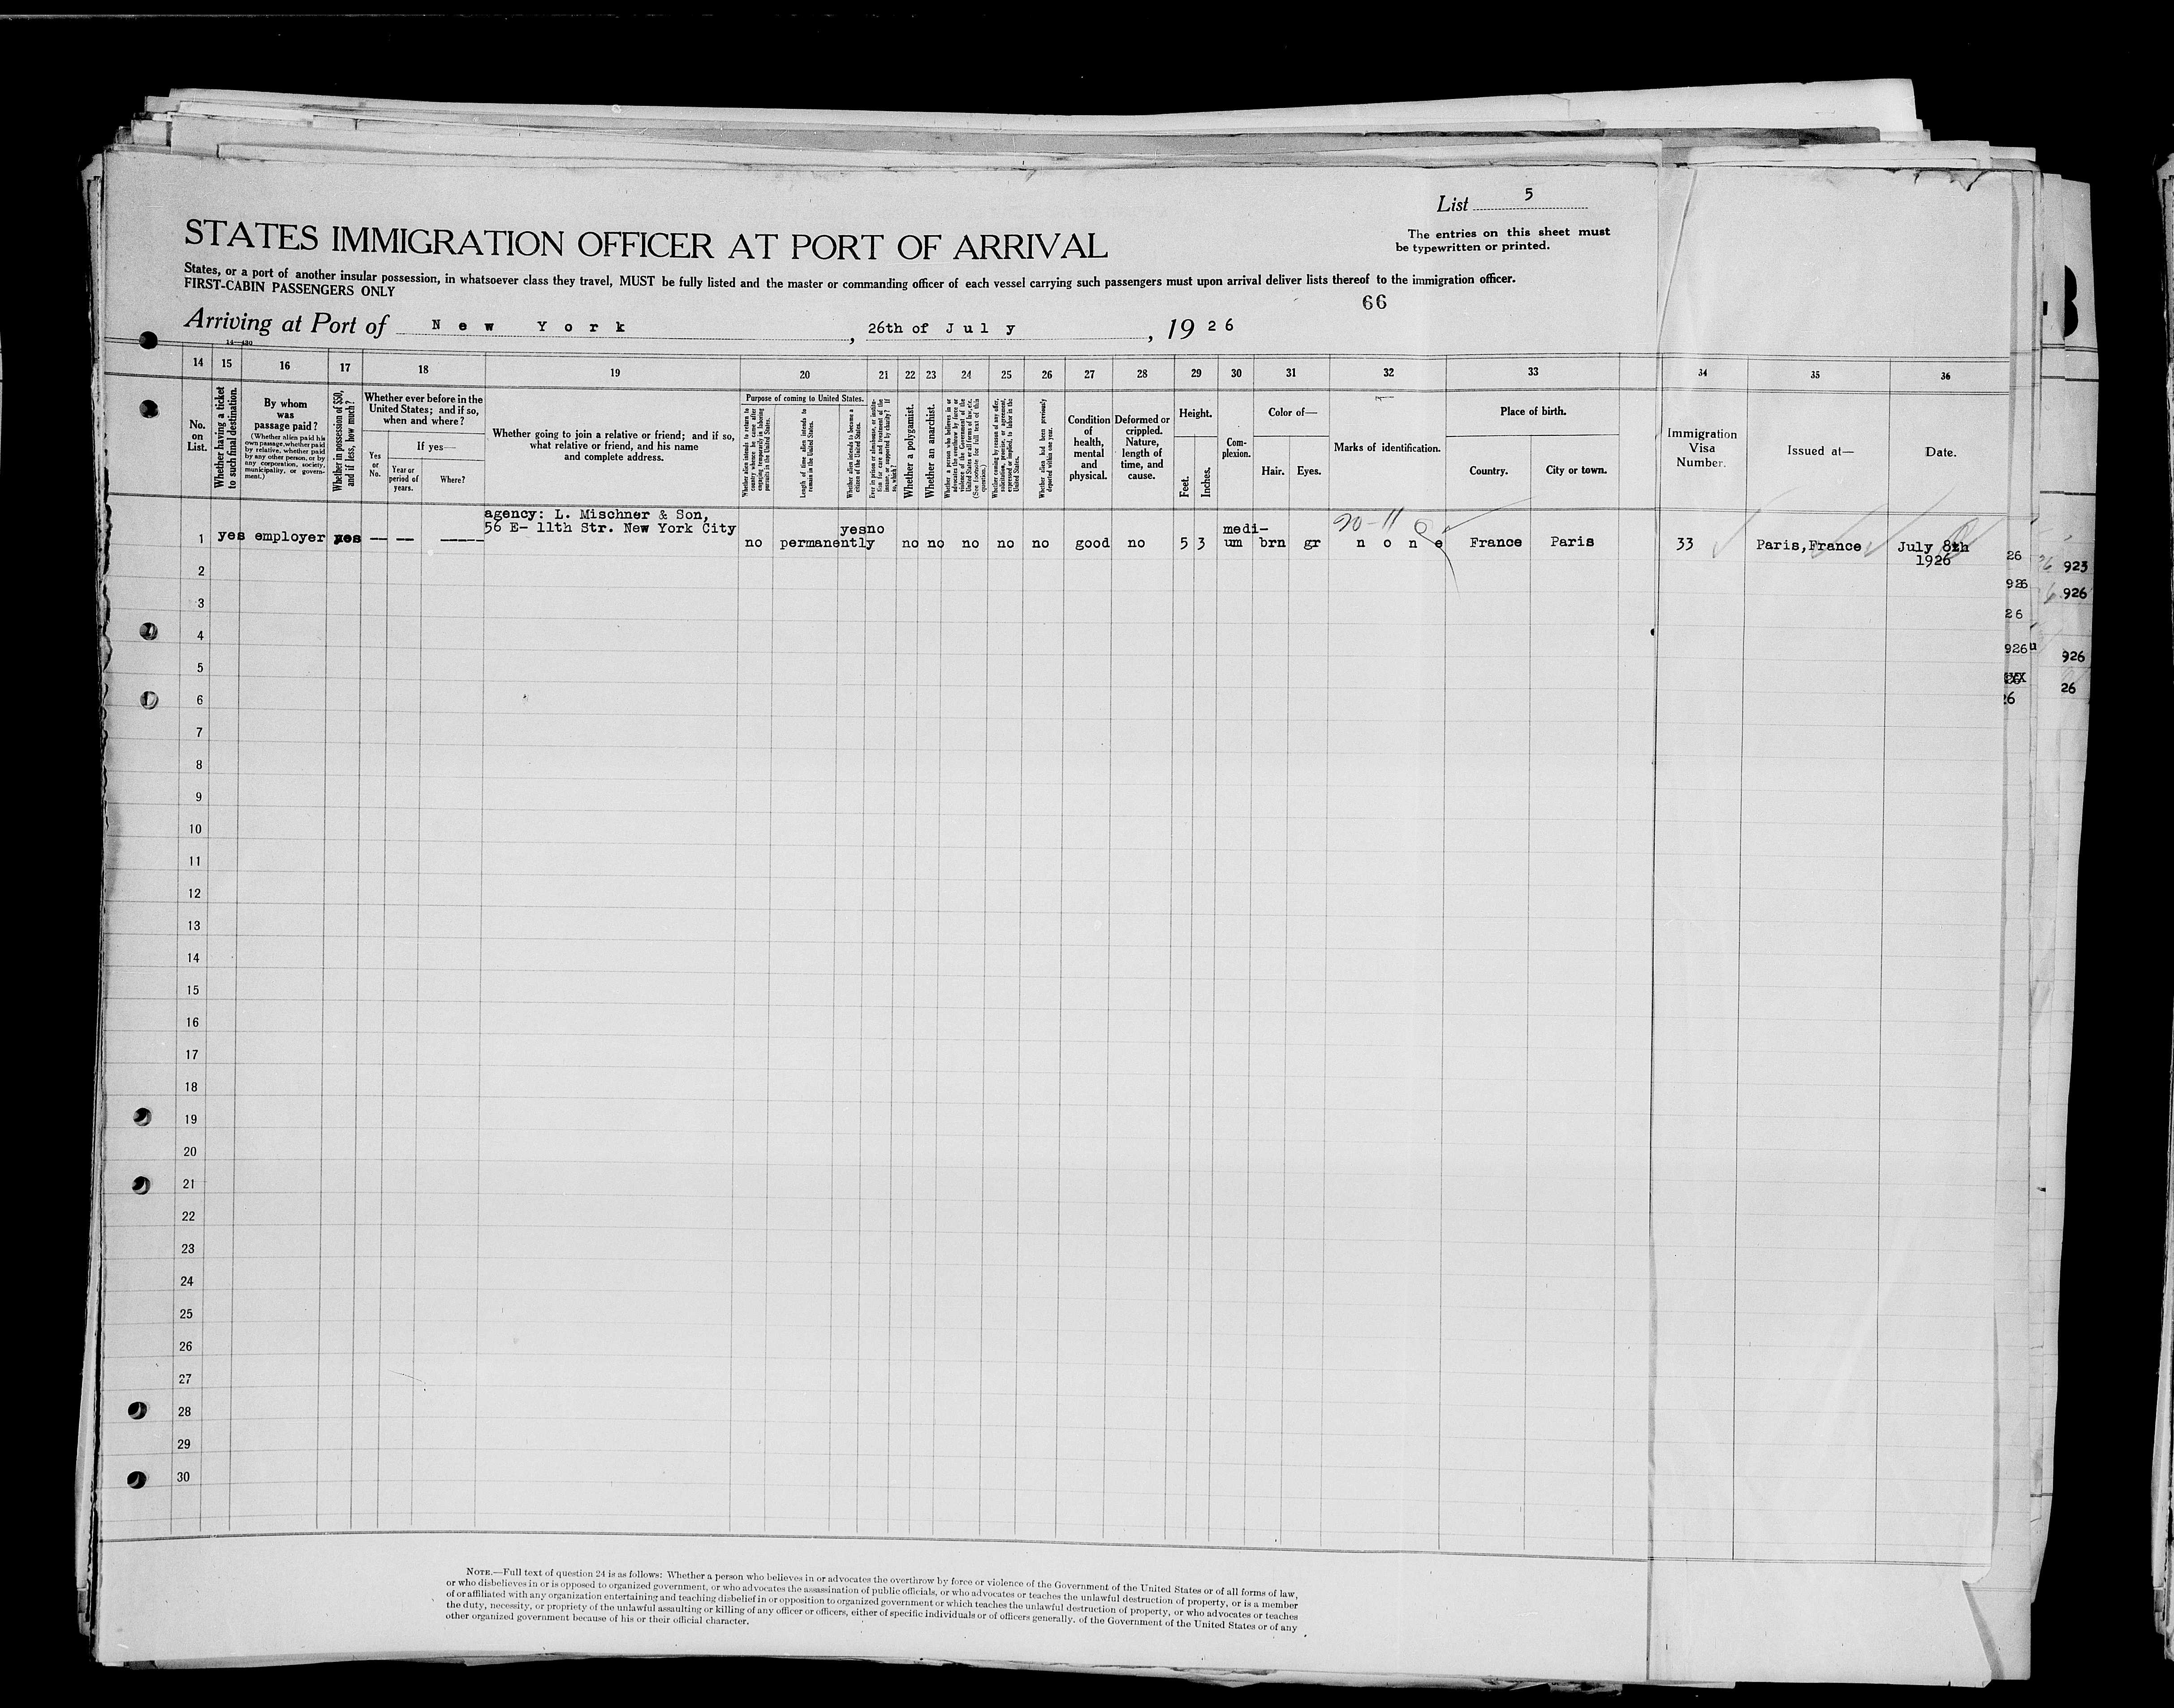 List 5
STATES IMMIGRATION OFFICER AT PORT OF ARRIVAL
The entries on this sheet must
be typewritten or printed.
States, or a port of another insular possession, in whatsoever class they travel, MUST be fully listed and the master or commanding officer of each vessel carrying such passengers must upon arrival deliver lists thereof to the immigration officer.
FIRST-CABIN PASSENGERS ONLY
66
Arriving at Port of New York, 26th of July, 1926
14 15 16 17 18 19 20 21 22 23 24 25 26 27 28 29 30 31 32 33 34 35 36
No.
on
List.
Whether having a ticket
to such final destination.
By whom
was
passage paid?
(Whether alien paid his
own passage, whether paid
by relative, whether paid
by any other person, or by
any corporation, society,
municipality, or govern-
ment.)
Whether in possession of $50,
and if less, how much?
Whether ever before in the
United States; and if so,
when and where?
Yes
or
No.
If yes—
Year or
period of
years.
Where?
Whether going to join a relative or friend; and if so,
what relative or friend, and his name
and complete address.
Purpose of coming to United States.
Whether alien intends to return to
country whence he came after
engaging temporarily in laboring
pursuits in the United States.
Length of time alien intends to
remain in the United States.
Whether alien intends to become a
citizen of the United States.
Ever in prison or almshouse, or institu-
tion for care and treatment of the
insane, or supported by charity? If
so, which?
Whether a polygamist.
Whether an anarchist.
Whether a person who believes in or
advocates the overthrow by force or
violence of the Government of the
United States or all forms of law, etc.
(See footnote for full text of this
question.)
Whether coming by reason of any offer,
solicitation, promise, or agreement,
expressed or implied, to labor in the
United States.
Whether alien had been previously
deported within one year.
Condition
of
health,
mental
and
physical.
Deformed or
crippled.
Nature,
length of
time, and
cause.
Height.
Feet.
Inches.
Com-
plexion.
Color of—
Hair.
Eyes.
Marks of identification.
Place of birth.
Country.
City or town.
Immigration
Visa
Number.
Issued at—
Date.
agency: L. Mischner & Son,
56 E- 11th Str. New York City
1 yes employer yes -- -- ----- no permanently yes no no no no no no good no 5 3 medi-
um brn gr none France Paris 33 Paris, France July 8th
1926
20-11
2
3
4
5
6
7
8
9
10
11
12
13
14
15
16
17
18
19
20
21
22
23
24
25
26
27
28
29
30
26
926
26
926
26
923
926
926
26
NOTE.—Full text of question 24 is as follows: Whether a person who believes in or advocates the overthrow by force or violence of the Government of the United States or of all forms of law,
or who disbelieves in or is opposed to organized government, or who advocates the assassination of public officials, or who advocates or teaches the unlawful destruction of property, or is a member
of or affiliated with any organization entertaining and teaching disbelief in or opposition to organized government or which teaches the unlawful destruction of property, or who advocates or teaches
the duty, necessity, or propriety of the unlawful assaulting or killing of any officer or officers, either of specific individuals or of officers generally, of the Government of the United States or of any
other organized government because of his or their official character.